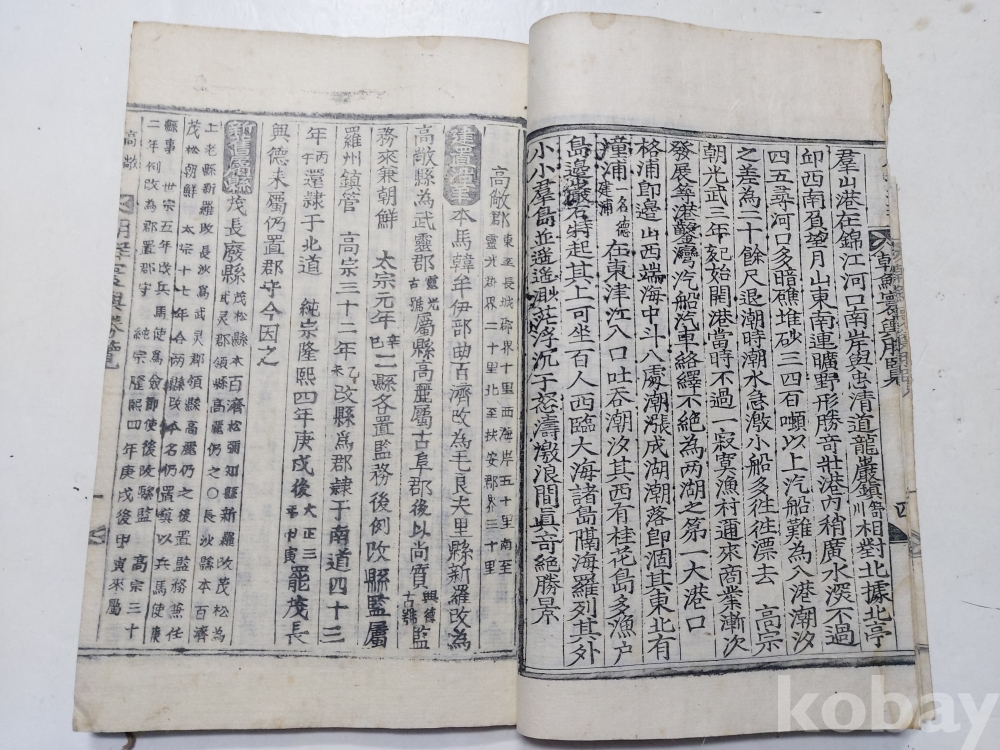 羣山港在錦江河口南岸與忠淸道龍巖鎭川相對北據北亭
卭西南負望月山東南連曠野形勝竒壯港内稍廣水深不過
四五尋河口多暗礁堆砂三四百噸以上汽船難為入港潮汐
之差為二十餘尺退潮時潮水急激小船多徃徃漂去 高宗
朝光武三年起始開港當時不過一寂寞漁村邇來商業漸次
發展等港鑿灣汽船汽車絡繹不絶為兩湖之第一大港口
格浦即邊山西端海中斗入處潮漲成湖潮落即涸其東北有
蓮浦一名德建浦在東津江入口吐呑潮汐其西有桂花島多漁户
島邊巖石特起其上可坐百人西臨大海諸島隔海羅列其外
小小羣島並遥遥渺茫浮沉于怒濤激浪間眞奇絶勝景
朝鮮寰輿勝覽
四
高敞郡 東至長城郡界十里西海岸五十里南至
靈光郡界二十里北至扶安郡界三十里
建置沿革 本馬韓牟伊部曲百濟改為毛良夫里縣新羅改為
高敞縣為武靈郡靈光古號屬縣高麗屬古阜郡後以尚質興德古號監
務來兼朝鮮 太宗元年辛巳二縣各置監務後例改縣監屬
羅州鎭管 高宗三十二年乙未改縣爲郡隷于南道四十三
年丙午還隷于北道 純宗隆熙四年庚戌後大正三年甲寅罷茂長
興德来屬仍置郡守今因之
新舊屬縣 茂長廢縣 茂松縣本百濟松彌知縣新羅改茂松為
武灵郡領縣高麗仍之〇長沙縣本百濟
上老縣新羅改長沙爲武灵郡領縣高麗仍之後置監務兼任
茂松朝鮮 太宗十七年合兩縣改今名仍置鎭以兵馬使兼
縣事 世宗五年改兵馬使爲僉節使後改縣監 高宗三十
二年例改為郡置郡守 純宗隆熙四年庚戌後甲寅来屬
高敞
朝鮮寰輿勝覽
kobay